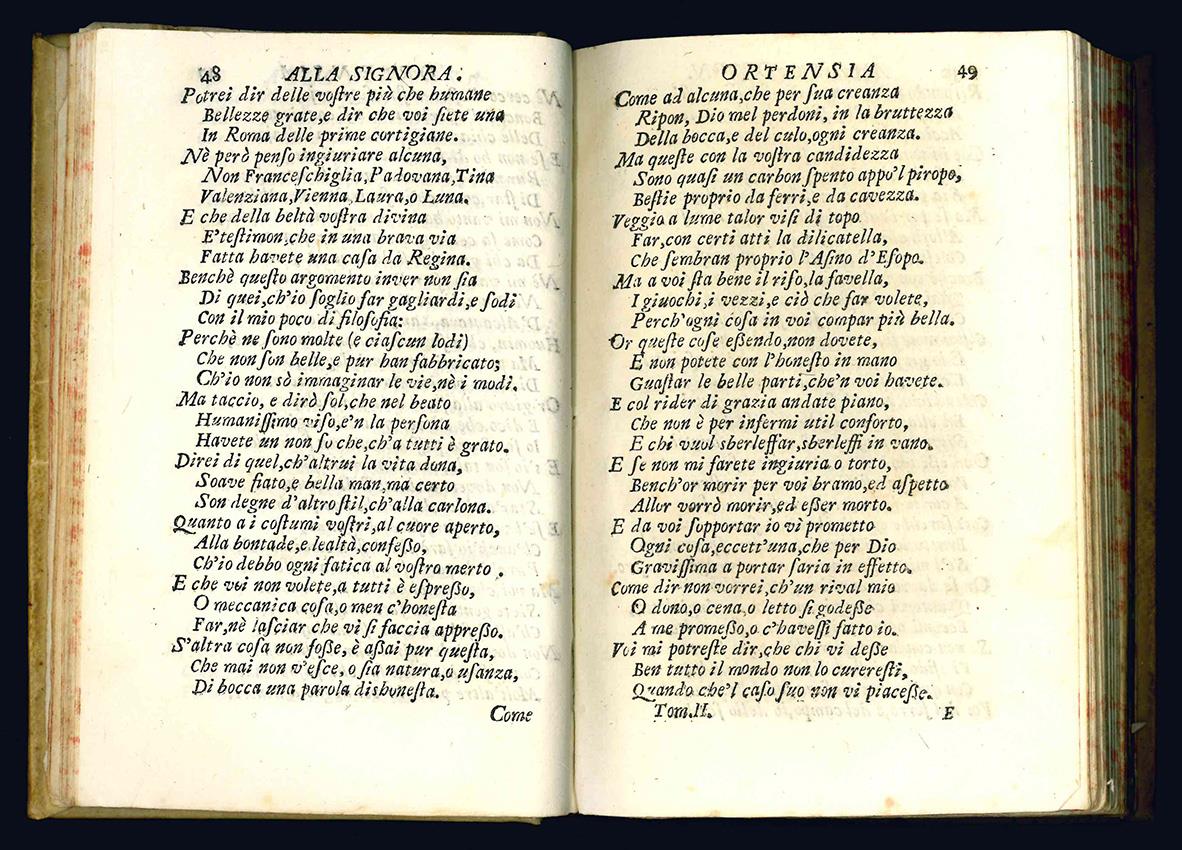 48 ALLA SIGNORA.
Potrei dir delle vostre più che humane
Bellezze grate,e dir che voi siete una
In Roma delle prime cortigiane.
Nè però penso ingiuriare alcuna,
Non Franceschiglia,Padovana,Tina
Valenziana,Vienna,Laura,o Luna.
E che della beltà vostra divina
E'testimon,che in una brava via
Fatta havete una casa da Regina.
Benchè questo argomento inver non sia
Di quei,ch'io soglio far gagliardi,e sodi
Con il mio poco di filosofia:
Perchè ne sono molte (e ciascun lodi)
Che non son belle,e pur han fabbricato;
Ch'io non sò immaginar le vie,nè i modi.
Ma taccio, e dirò sol,che nel beato
Humanissimo viso,e'n la persona
Havete un non so che,ch'a tutti è grato.
Direi di quel,ch'altrui la vita dona,
Soave fiato,e bella man,ma certo
Son degne d'altro stil,ch'alla carlona.
Quanto a i costumi vostri,al cuore aperto,
Alla bontade,e lealtà,confesso,
Ch'io debbo ogni fatica al vostro merto.
E che voi non volete,a tutti è espresso,
O meccanica cosa,o men c'honesta
Far,nè lasciar che vi si faccia appresso.
S'altra cosa non fosse, è assai pur questa,
Che mai non v'esce, o sia natura,o usanza,
Di bocca una parola dishonesta.
Come
ORTENSIA 49
Come ad alcuna,che per sua creanza
Ripon, Dio mel perdoni, in la bruttezza
Della bocca,e del culo,ogni creanza.
Ma queste con la vostra candidezza
Sono quasi un carbon spento appo'l piropo,
Bestie proprio da ferri,e da cavezza.
Veggio a lume talor visi di topo
Far,con certi atti la dilicatella,
Che sembran proprio l'Asino d'Esopo.
Ma a voi sta bene il riso,la favella,
I giuochi,i vezzi,e ciò che far volete,
Perch'ogni cosa in voi compar più bella.
Or queste cose essendo,non dovete,
E non potete con l'honesto in mano
Guastar le belle parti,che'n voi havete.
E col rider di grazia andate piano,
Che non è per infermi util conforto,
E chi vuol sberleffar,sberleffi in vano.
E se non mi farete ingiuria o torto,
Bench'or morir per voi bramo,ed aspetto
Allor vorrò morir,ed esser morto.
E da voi sopportar io vi prometto
Ogni cosa,eccett'una,che per Dio
Gravissima a portar saria in effetto.
Come dir non vorrei,ch'un rival mio
O dono,o cena,o letto si godesse
A me promesso,o c'havessi fatto io.
Voi mi potreste dir,che chi vi desse
Ben tutto il mondo non lo cureresti,
Quando che'l caso suo non vi piacesse.
Tom.II. E